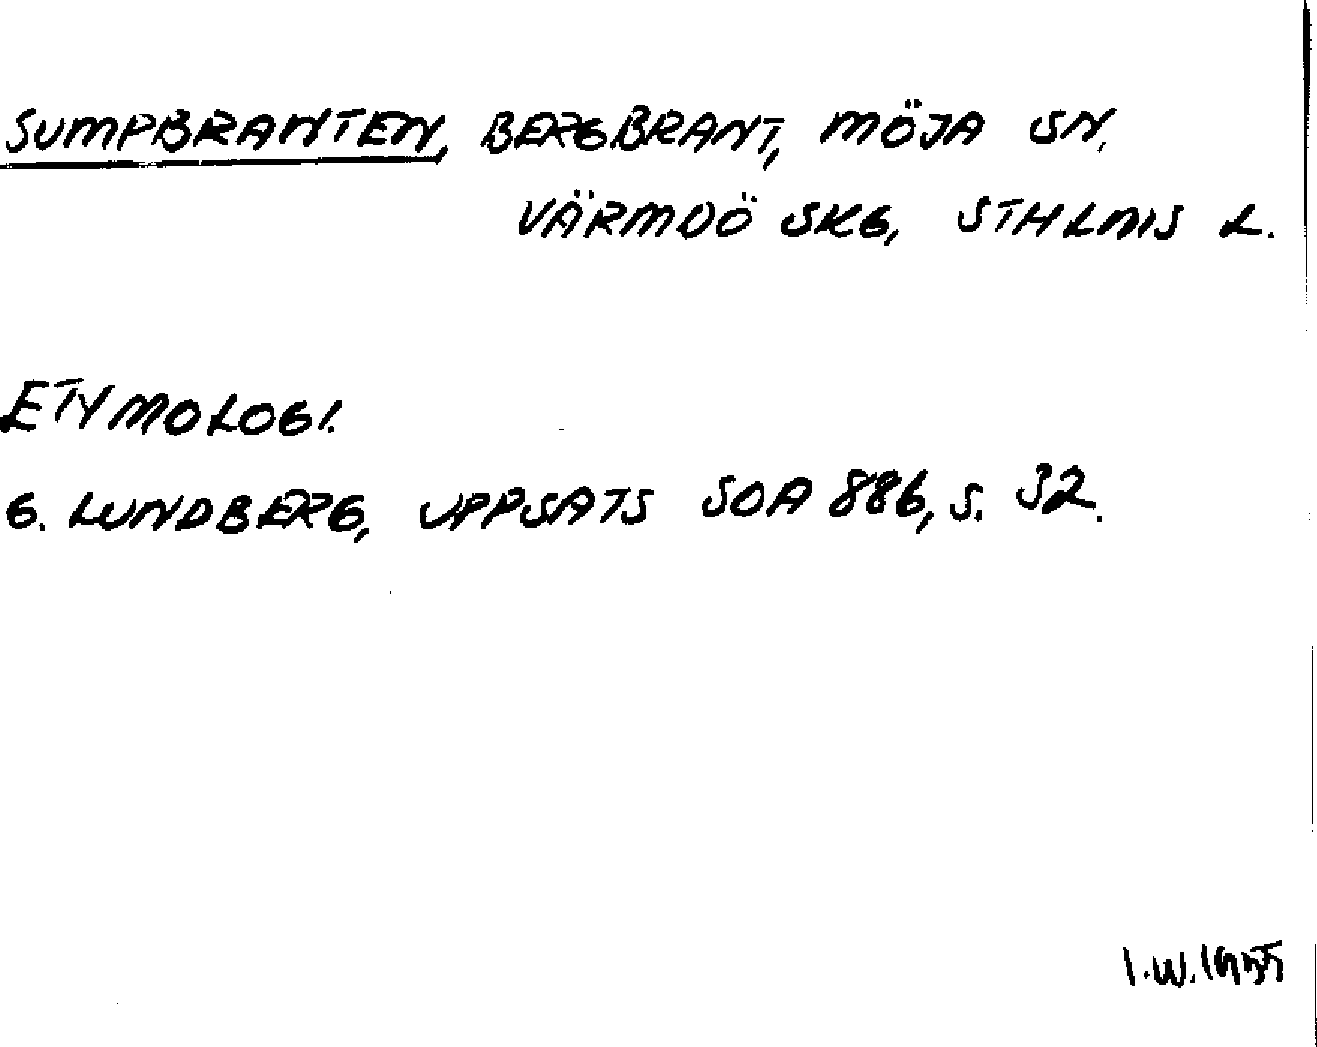 SUMPBRANTEN, BERGBRANT, MÖJA SN.
VÄRMDÖ SKG, STHLMS L.
ETYMOLOGI.
G. LUNDBERG, UPPSATS SOA 886, S. 32.
I.W. 1955